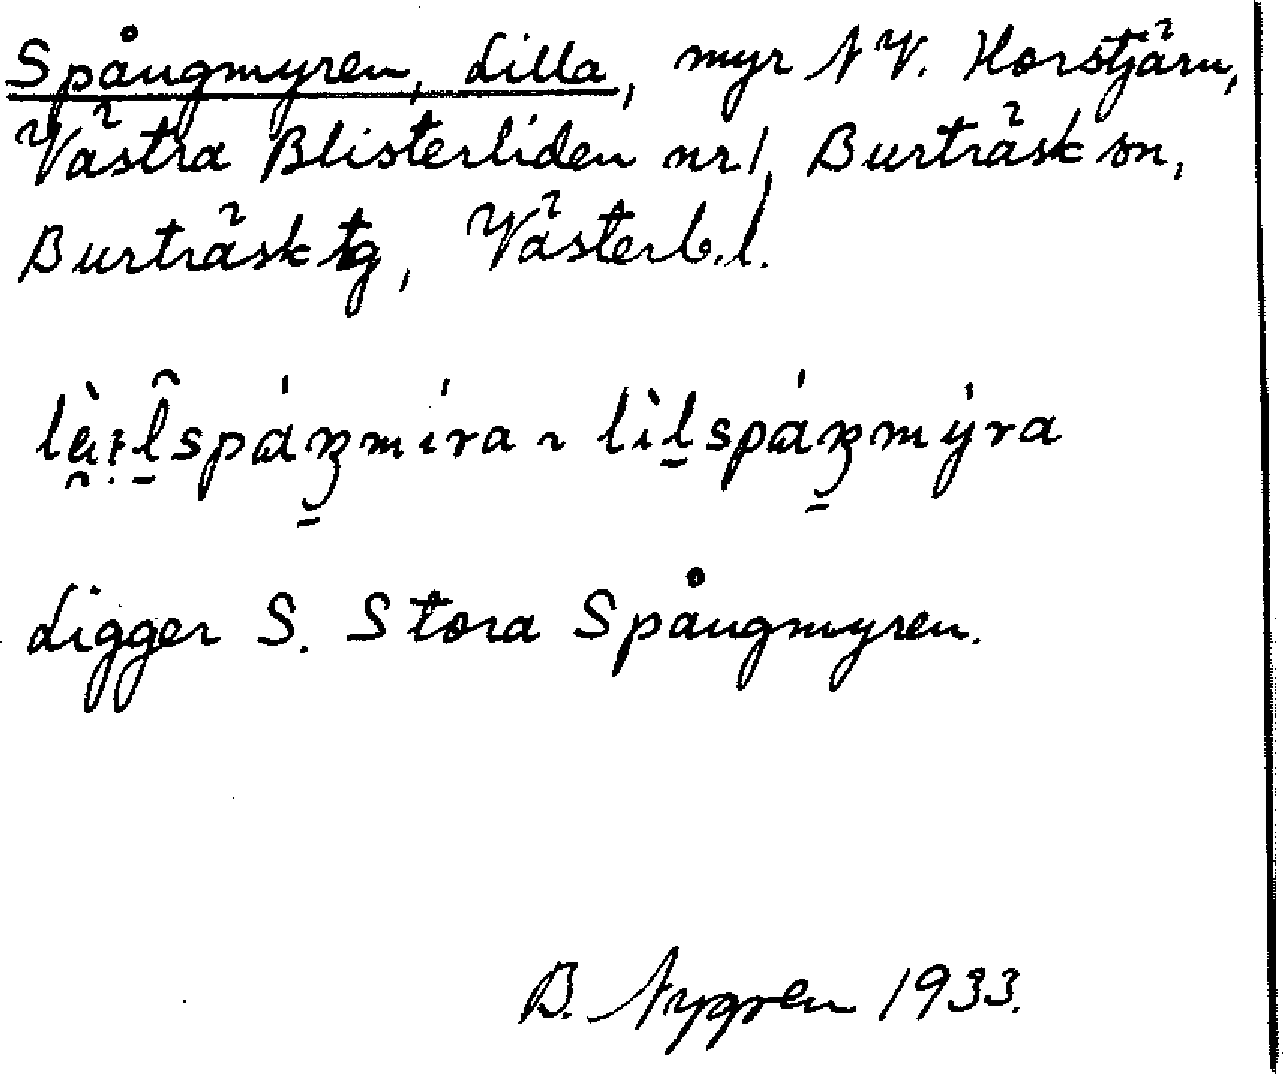 Spångmyren, Lilla, myr NV. Horstjärn,
Västra Blisterliden nr 1, Burträsk sn,
Burträsk tg, Västerb.l.
lilspáŋmýra
Ligger S. Stora Spångmyren.
B. Nygren 1933.